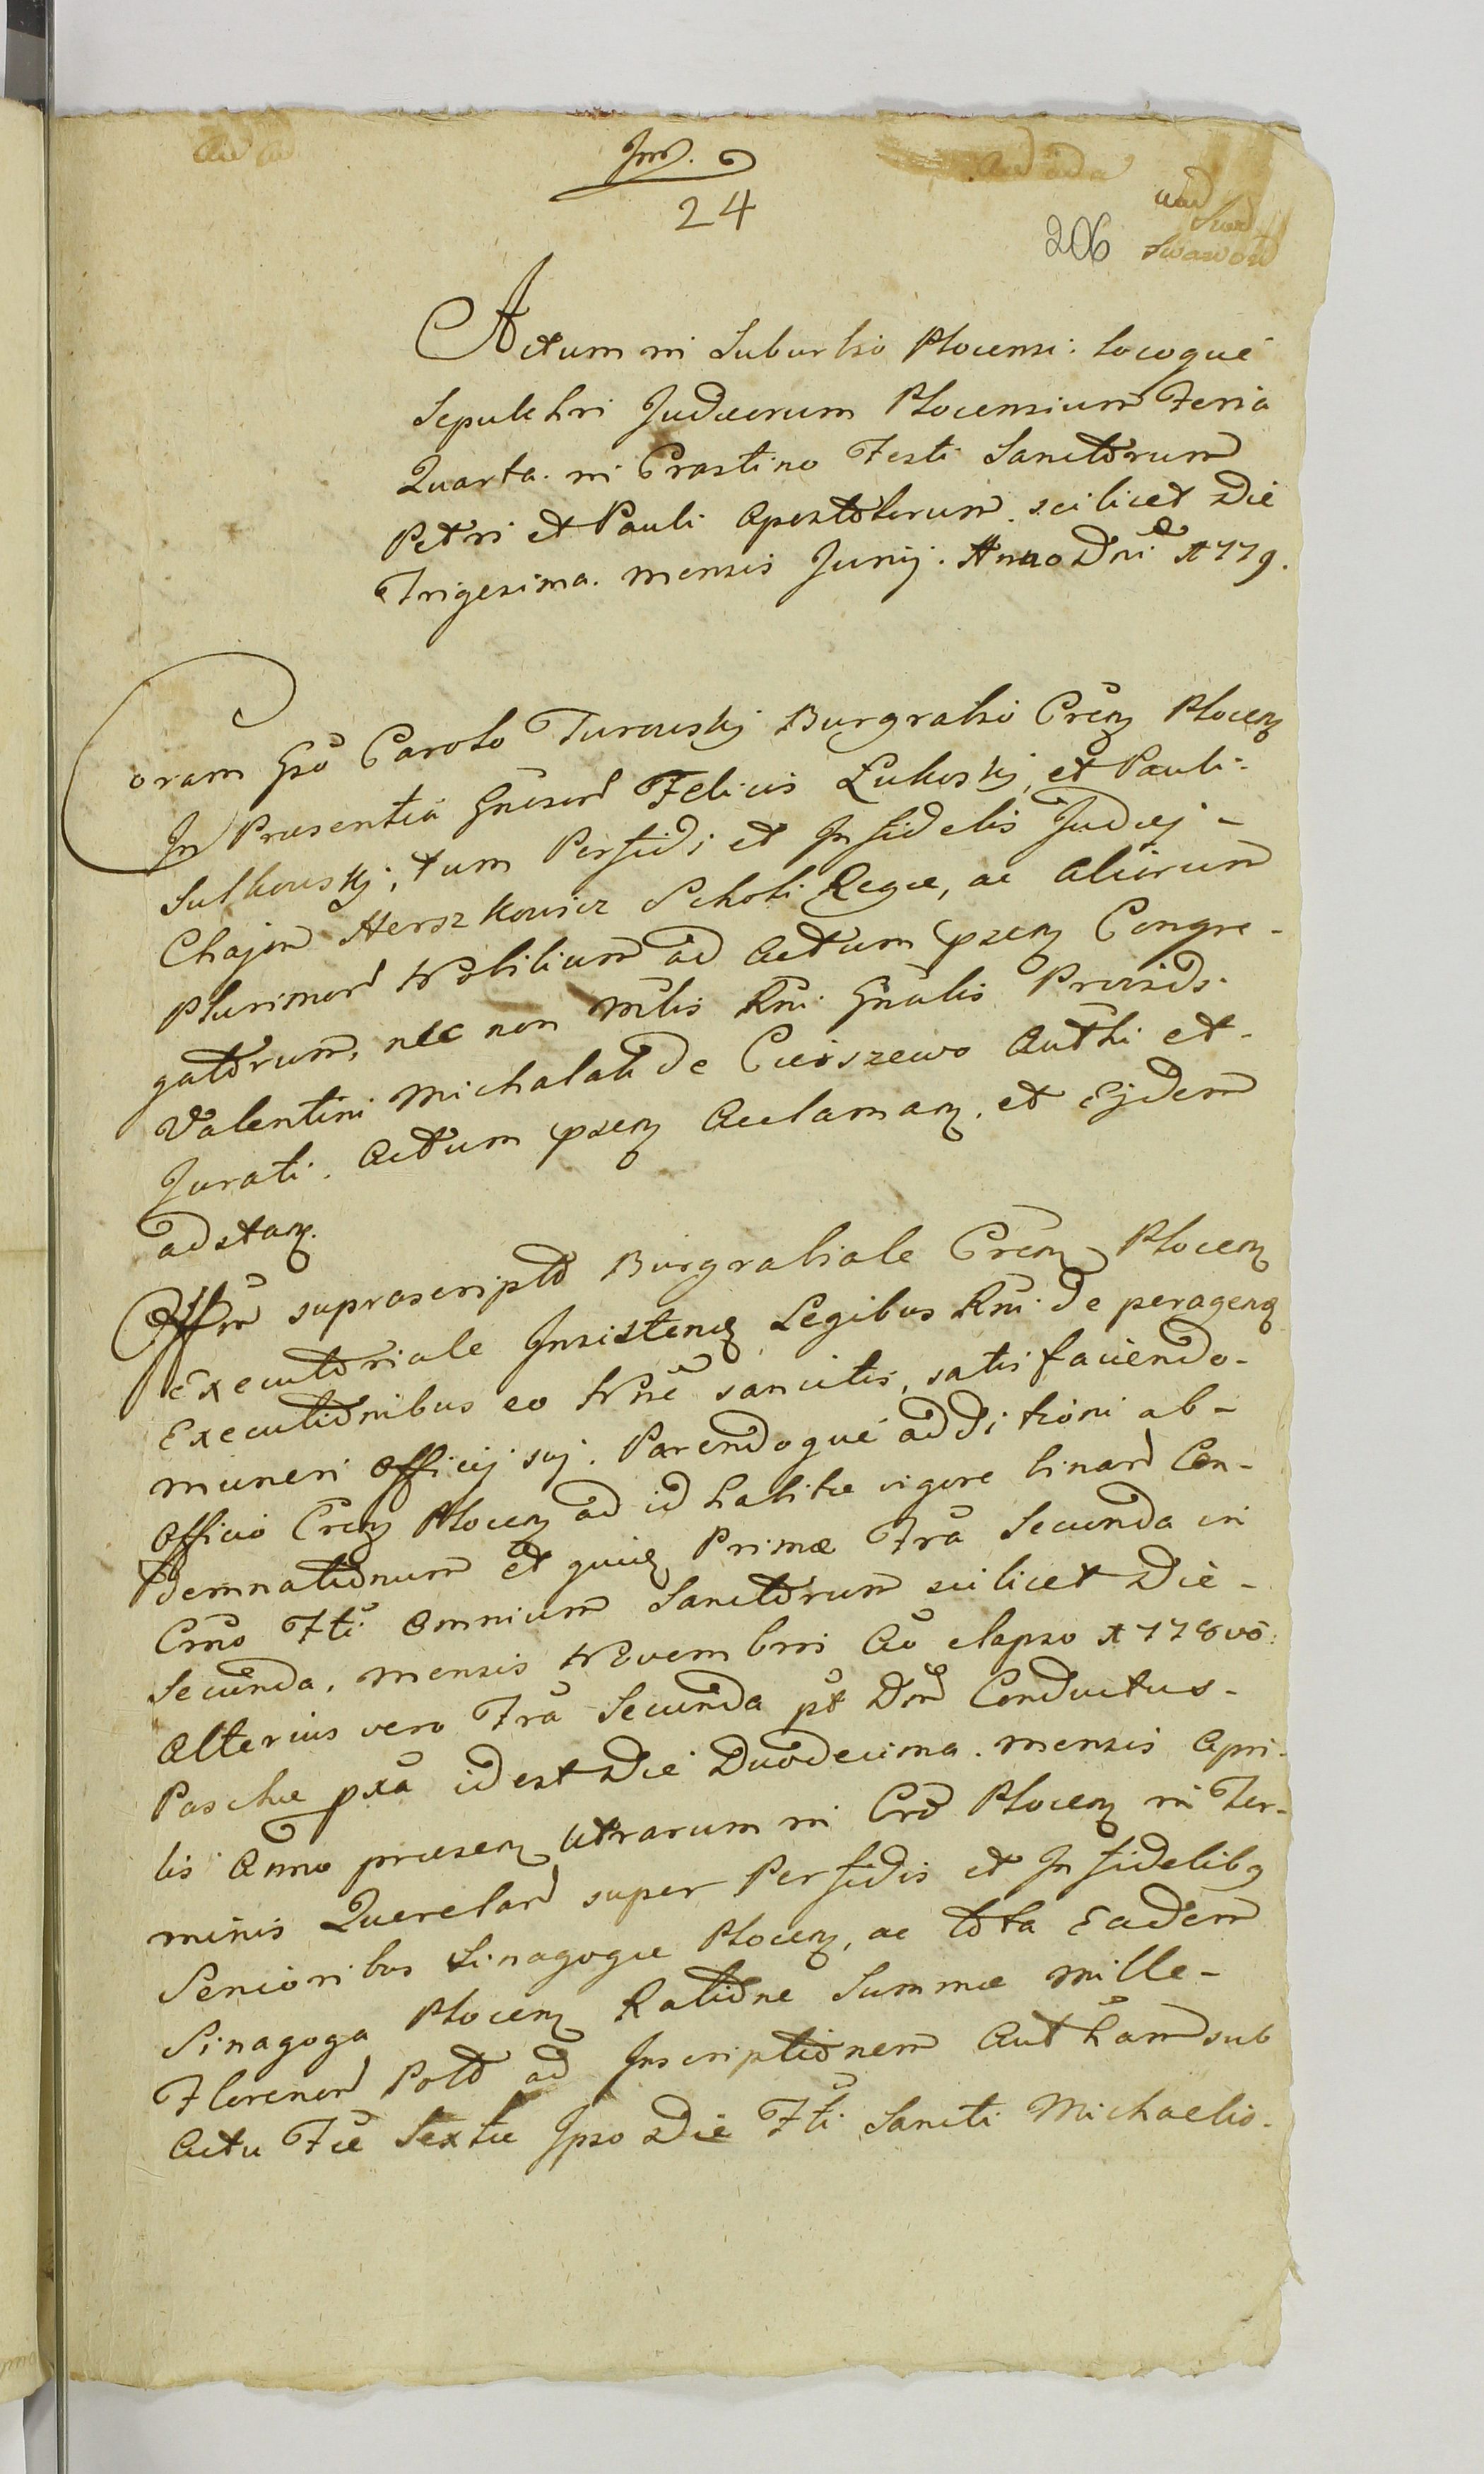 24
206
Actum in Suburbio Plocensi. locoque
Sepulchri Judæorum Plocensium Feria
Quarta. in Crastino Festi Sanctorum
Petri et Pauli Apostolorum. scilicet Die
Trigesima. mensis Junij. Anno Dni 1779.
Coram Gso Carolo Turowskj Burgrabio Crên Plocen
In Præsentia Gnosor Felicis Lukoskj, et Pauli
Sulkowskj, tum Perfidi et Infidelis Judæj -
Chajm Herszkowicz Schol Regæ, ac Aliorum
Plurimor Nobilium ad Actum psen Congre-
gatorum, nec non Mlis Rni Gnalis Providi
Valentini Michalak de Cieszewo Auth et -
Jurati. Actum psen Acclaman. et Ejdem
adstan.
Offm suprascripto Burgrabiale Crên Plocen
Executoriale Insisten Legibus Rni de peragen
Executionibus eo Nne sancitis, satisfaciendo-
muneri Officij suj. Parendoque additioni ab-
Officio Crên Plocen ad id habitæ vigore binar Con-
demnationum et quid Primæ Fra Secunda in
Crno Fti Omnium Sanctorum scilicet Die -
Secunda. mensis Novembris Ao elapso 1778vo
Alterius vero Fra Secunda pt Dni Conductus -
Paschæ pxa id est Die Duodecima. mensis Apri-
lis Anno præsen utrarum in Cro Plocen in Ter-
minis Querelar super Perfidis et Infidelibq
Senioribus Sinagogæ Plocen, ac tota Eadem
Sinagoga Plocen Ratione Summæ mille -
Florenor Polo ad Inscriptionem Autham sub
Actu Fæ Sextæ Ipso Die Fti Sancti Michaelis.